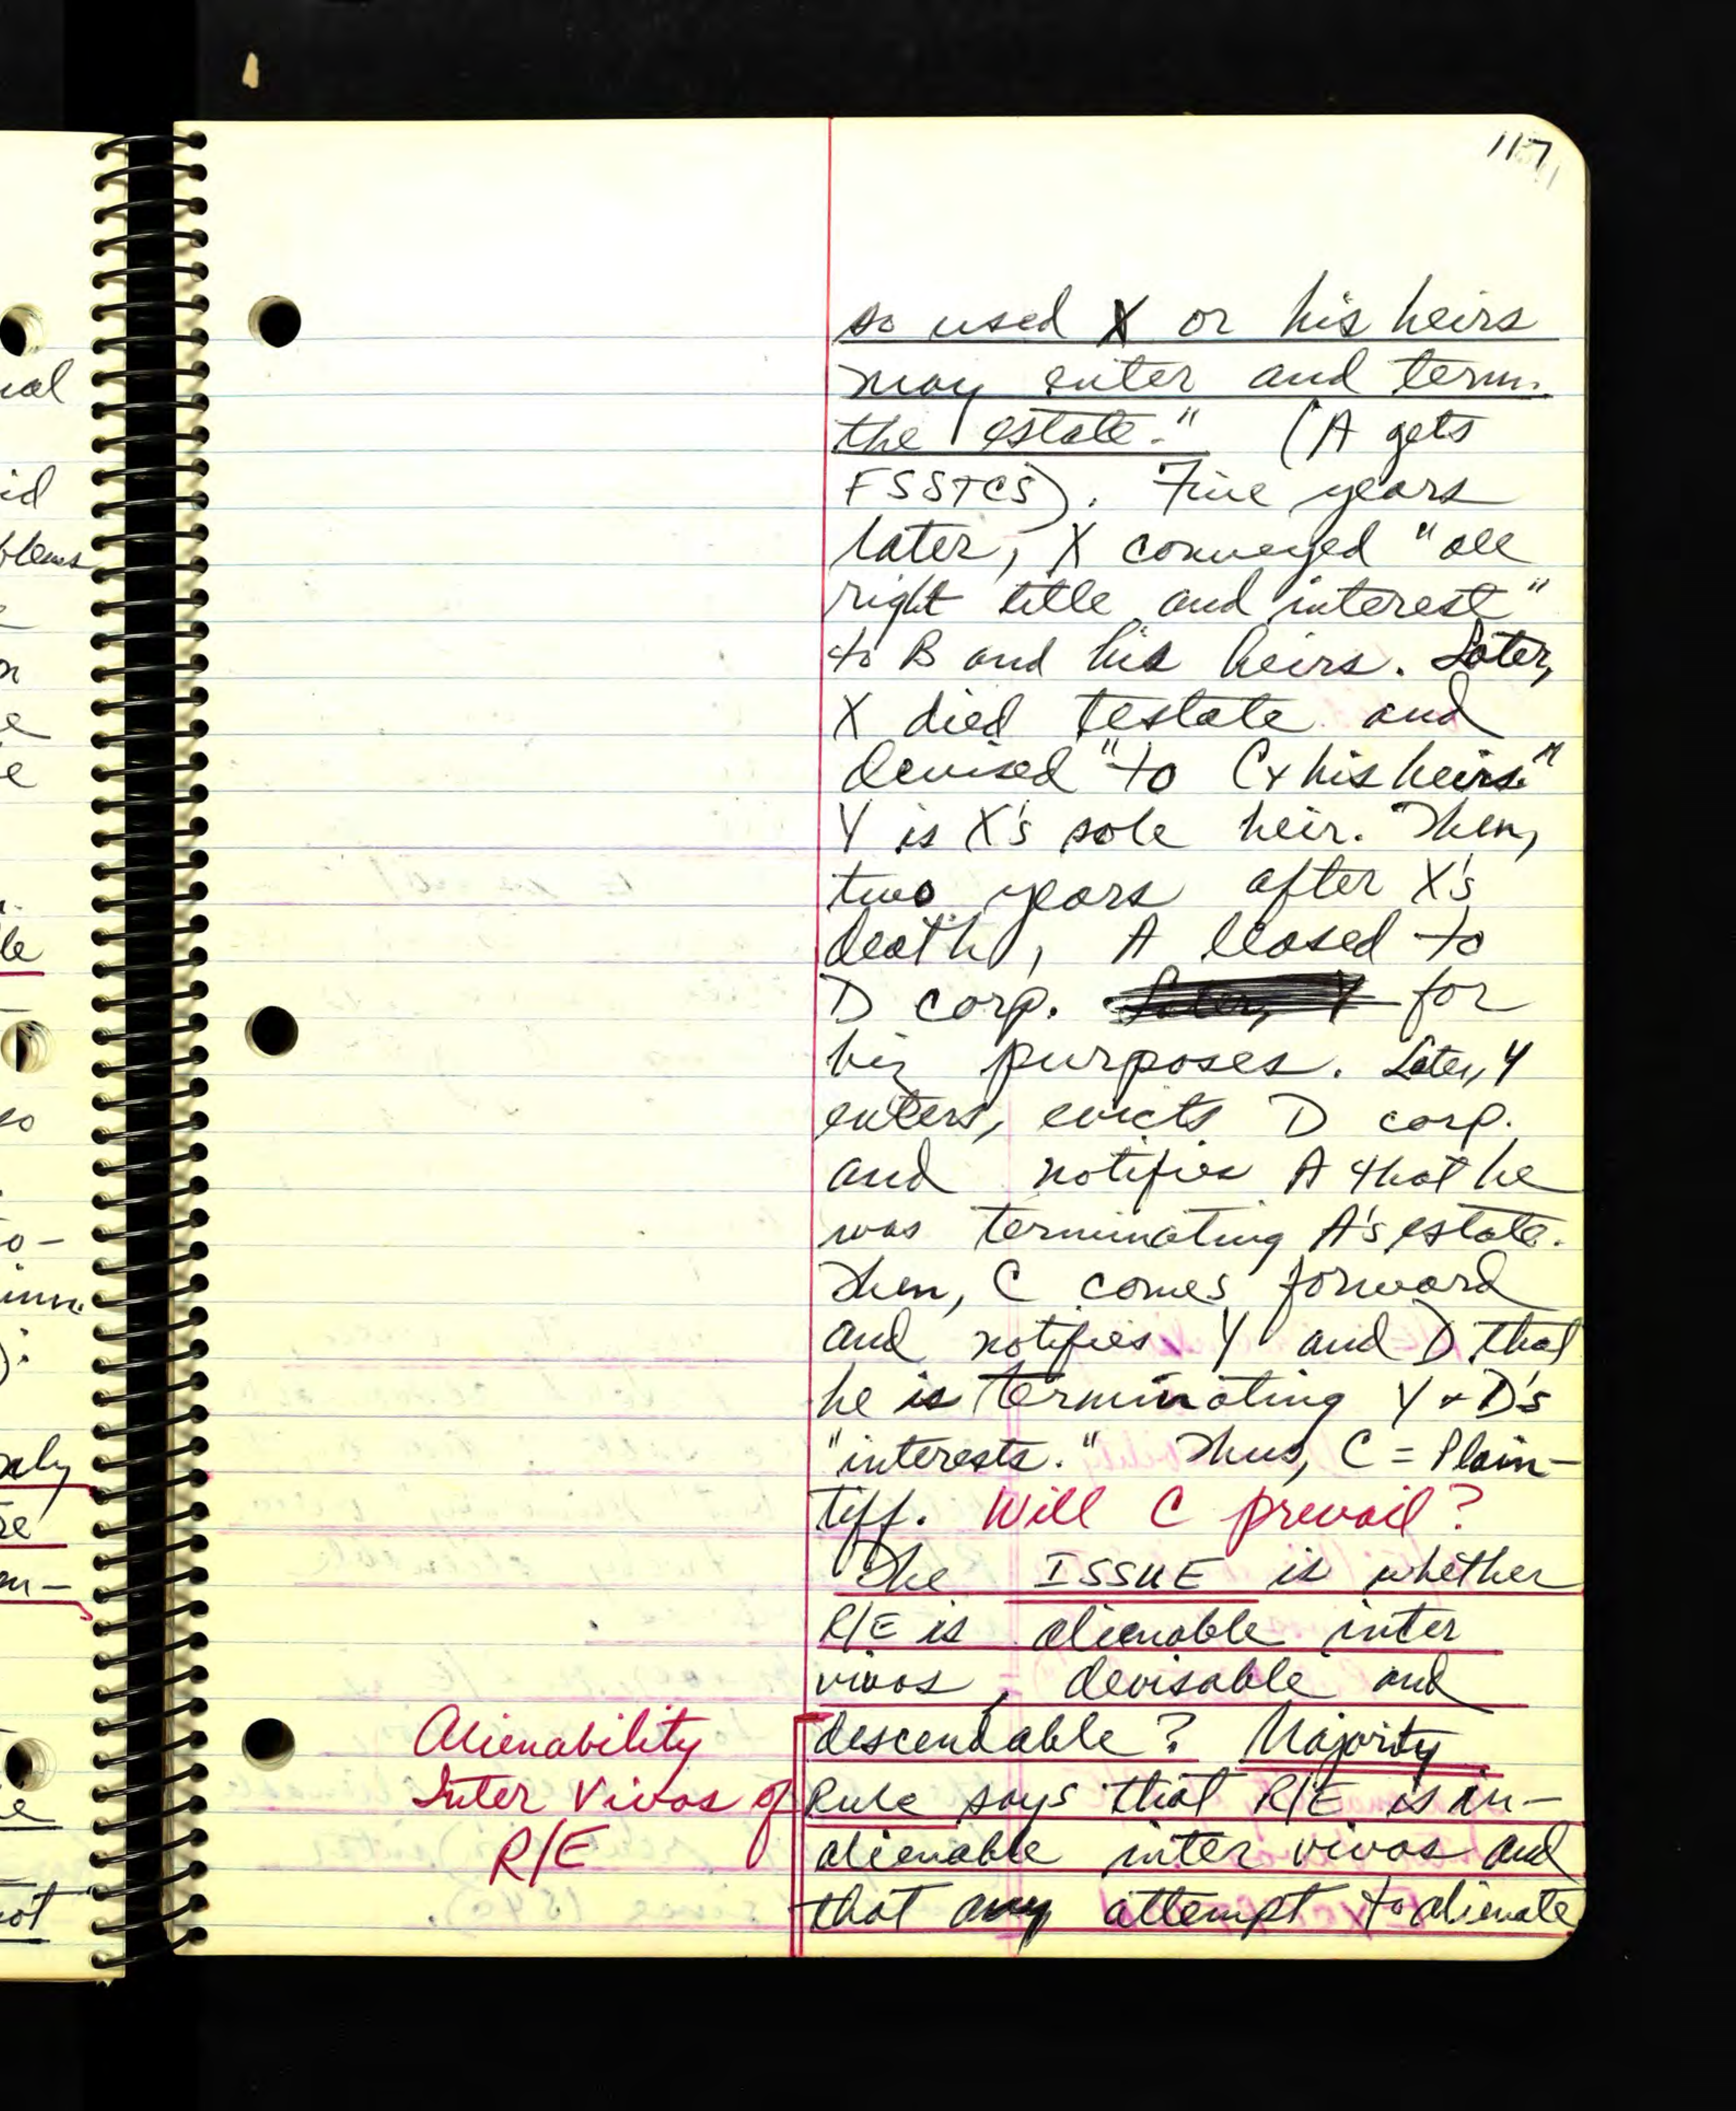 117
so used X or his heirs
may enter and term.
the estate." (A gets
FSSTCS). Five years
later, X conveyed "all
right title and interest"
to B and his heirs. Later,
X died testate and
devised "to C + his heirs."
Y is X's sole heir. Then,
two years after X's
death, A leased to
D corp. for
biz purposes. Later, Y
enters, evicts D corp.
and notifies A that he
was terminating A's estate.
Then, C comes forward
and notifies Y and D that
he is terminating Y + D's
"interests." Thus, C = Plain-
tiff. Will C prevail?
The ISSUE is whether
R/E is alienable inter
vivos, devisable and
descendable? Majority
Rule says that R/E is in-
alienable inter vivos and
that any attempt to alienate
Alienability
Inter Vivos of
R/E